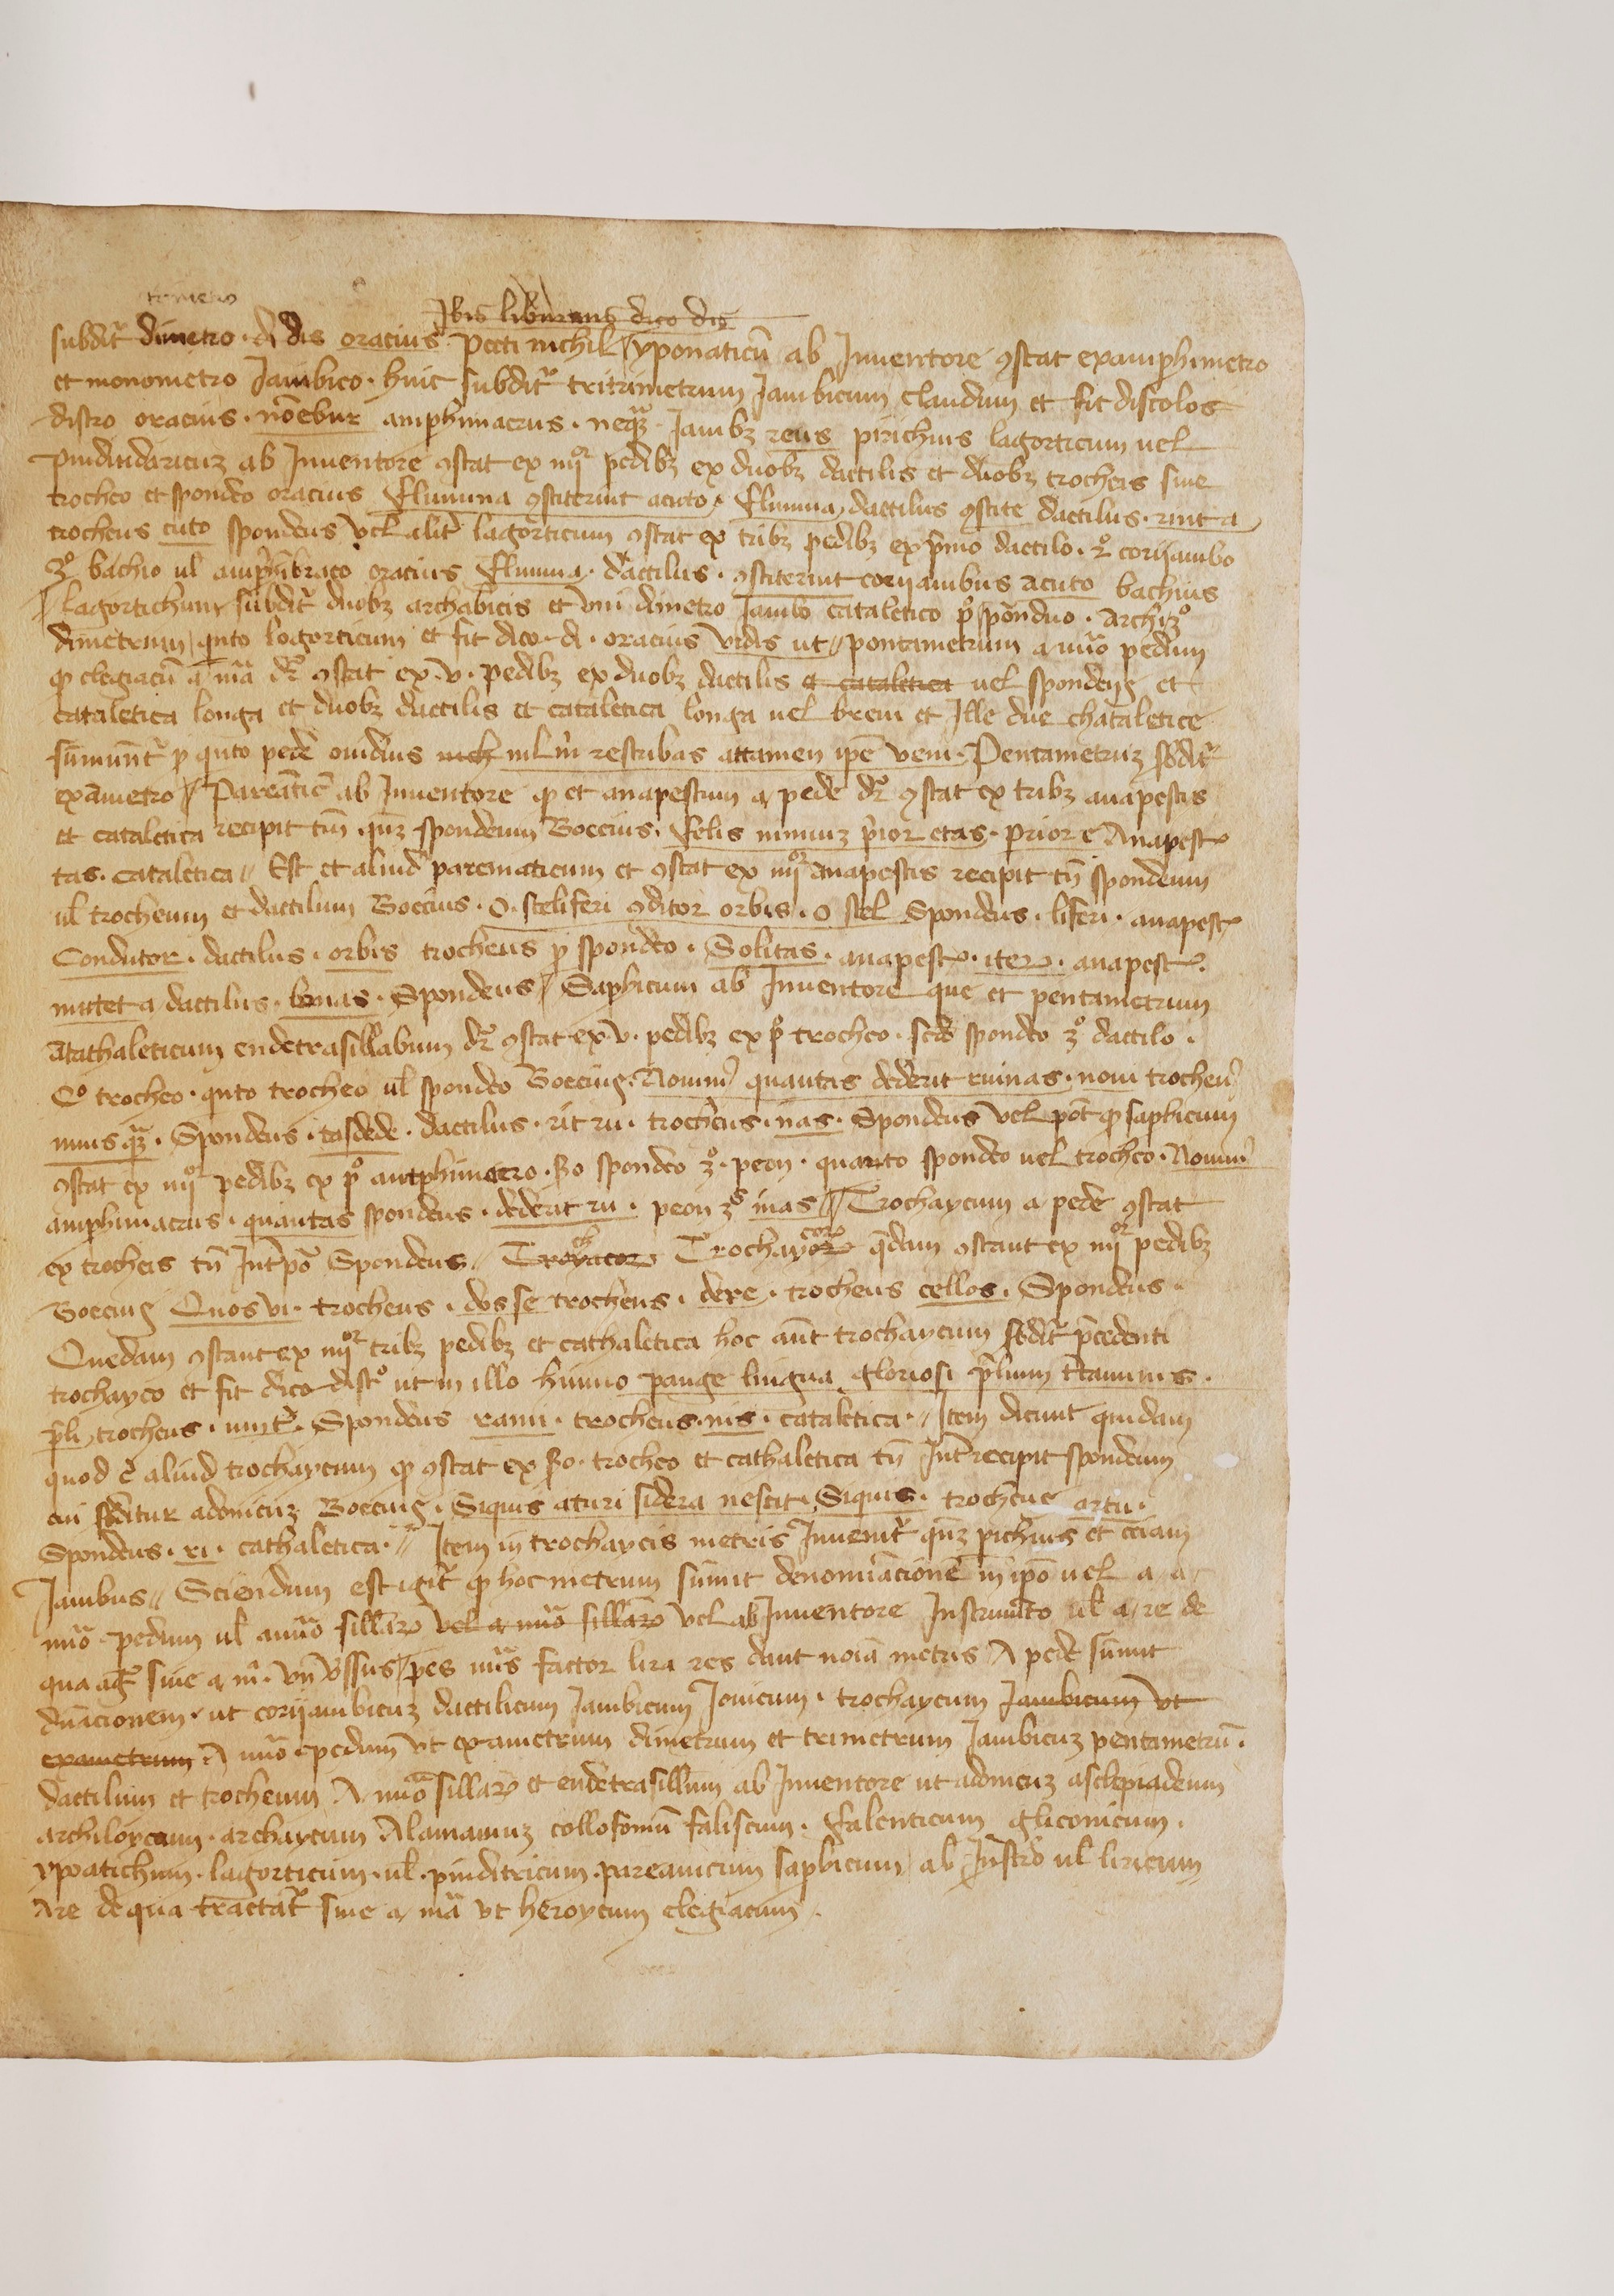 trimetro
Ibis liburnis dico dis
subdit̄ dimetro · di dis oracius Pecti nichil // yponaticū ab Inventore ꝯstat ex amphimetro
et monometro Iambico · huic subdit̄ tritrimetrum Iambicum claudum et fit discolos
distro oracius · nō ebur amphimacrus · neqꝫ Iambꝫ reus pirichius lagorticum uel
pindindaricuꝫ ab Inventore ꝯstat ex iiijor pedibꝫ ex duobꝫ dactilis et duobꝫ trocheis siue
trocheo et spondeo oracius flumina ꝯstiterint acuto · flumina dactilus ꝯstite dactilus · rint a
trocheus cuto spondeus vel alit̄ lagorticum ꝯstat ex tribꝫ pedibꝫ ex p̄mo dactilo · 2o corijambo
3o bachio ul amphibraco oracius flumina · dactilus · ꝯstiterint corijambus acuto bachius
// lagortichum subdit̄ duobꝫ archabicis et vni dimetro Iambo cataletico
dimetrum qnto logorticum et fit dico · di · oracius vides ut // pentametrum a nūo pedum
ꝙ elegiacū a mā dr̄ ꝯstat ex · v · pedibꝫ ex duobꝫ dactilis et cataletica uel spondeis et
cataletica longa et duobꝫ dactilis et cataletica longa uel breui et Ille due chataletice
sūmunt̄ p qnto pede ouidius nich nil m̄ rescribas attamen ipē veni · Pentametruꝫ sbdit̄
exāmetro // Pareātic̄ ab Inventore ꝙ et anapestum a pede dr̄ ꝯstat ex tribꝫ anapestis
et cataletica recipit tn̄ qnꝫ spondeum Boecius · felix nimiuꝫ p̄ior etas · prior e Anapest
tas · cataletica // Est et aliud parematicum et ꝯstat ex iiijor anapestis recipit tn̄ spondeum
ul trocheum et dactilum Boecius · O · steliferi ꝯditor orbis · o stel Spondeus · liferi · anapest
Conditor · dactilus · orbis trocheus p spondeo · Solitas · anapest · iter · anapest
mutet a dactilus · bonas · Spondeus // Saphicum ab Inventore que et pentametrum
Atathaleticum endetrasillabum dr̄ ꝯstat ex · v · pedibꝫ ex po trocheo · scdo spondeo 3o dactilo ·
4o trocheo · qnto trocheo ul spondeo Boecius · Nouim̄ quantas dederit ruinas · noui trocheu
mus qꝫ · Spondeus · tasdede · dactilus · rit ru · trocheus · nas · Spondeus vel pōt ꝙ saphicum
ꝯstat ex iiijor pedibꝫ ex po antphimacro · 2o spondeo 3o · peon · quarto spondeo uel trocheo · Nouim
amphimacrus · quantas spondeus · dederit ru · peon 3s inas // Trochaycum a pede ꝯstat
ex trocheis tn̄ Int̄pō Spondeus // Trochayco4 qdam ꝯstant ex iiijor pedibꝫ
Boecius Quos vi · trocheus · des se trocheus · dere · trocheus cellos · Spondeus ·
Quedam ꝯstant ex iiijor tribꝫ pedibꝫ et cathaletica hoc aūt trochaycum sbdit̄ p̄cedenti
trochayco et fit dico · disto ut in illo himno pange lingua gloriosi p̄lium c̄taminis ·
p̄li trocheus · umc̄ · Spondeus rami · trocheus · nis · cataletica · // Item dicunt quidam
quod ē aliud trochaycum ꝙ ꝯstat ex 2o · trocheo et cathaletica tn̄ Int̄ recipit spondeum
cui sbditur adonicuꝫ Boecius · Siquis arturi sidera nescit · Siquis · trocheus artu ·
Spondeus · ri · cathaletica · // Item in trochaycis metris Inuenit̄ qnꝫ pichius et eciam
Iambus // Sciendum est igit̄ ꝙ hoc metrum sumit denomiācionē in ipō uel a a
nūo pedum ul a nūo sillar̄ vel a nūo sillar̄ vel ab Inventore Instrumēto ul a re de
qua agit̄ siue a m̄ · vn̄ v̄ssus // pes nūs factor lira res dant noīa metris A pede sumit
dnācionem · ut corijambicuꝫ dactilicum Iambicum Ionicum · trochaycum Iambicum vt
exametrum A nūo pedum vt exametrum dimetrum et trimetrum Iambicuꝫ pentametrū ·
dactilum et trocheum A nūo sillar̄ et endetrasillum ab Inventore ut adonicuꝫ asclepiadeum
archiloycum · archaycum Alamanuꝫ collofomū faliscum · falenticum gliconicum ·
ypoatichum · lagorticum · ul · pinditricum · pareamicum saphicum ab Inst̄ro ul liricum
A re de qua tractat̄ siue a mā vt heroycum elegiacum ·